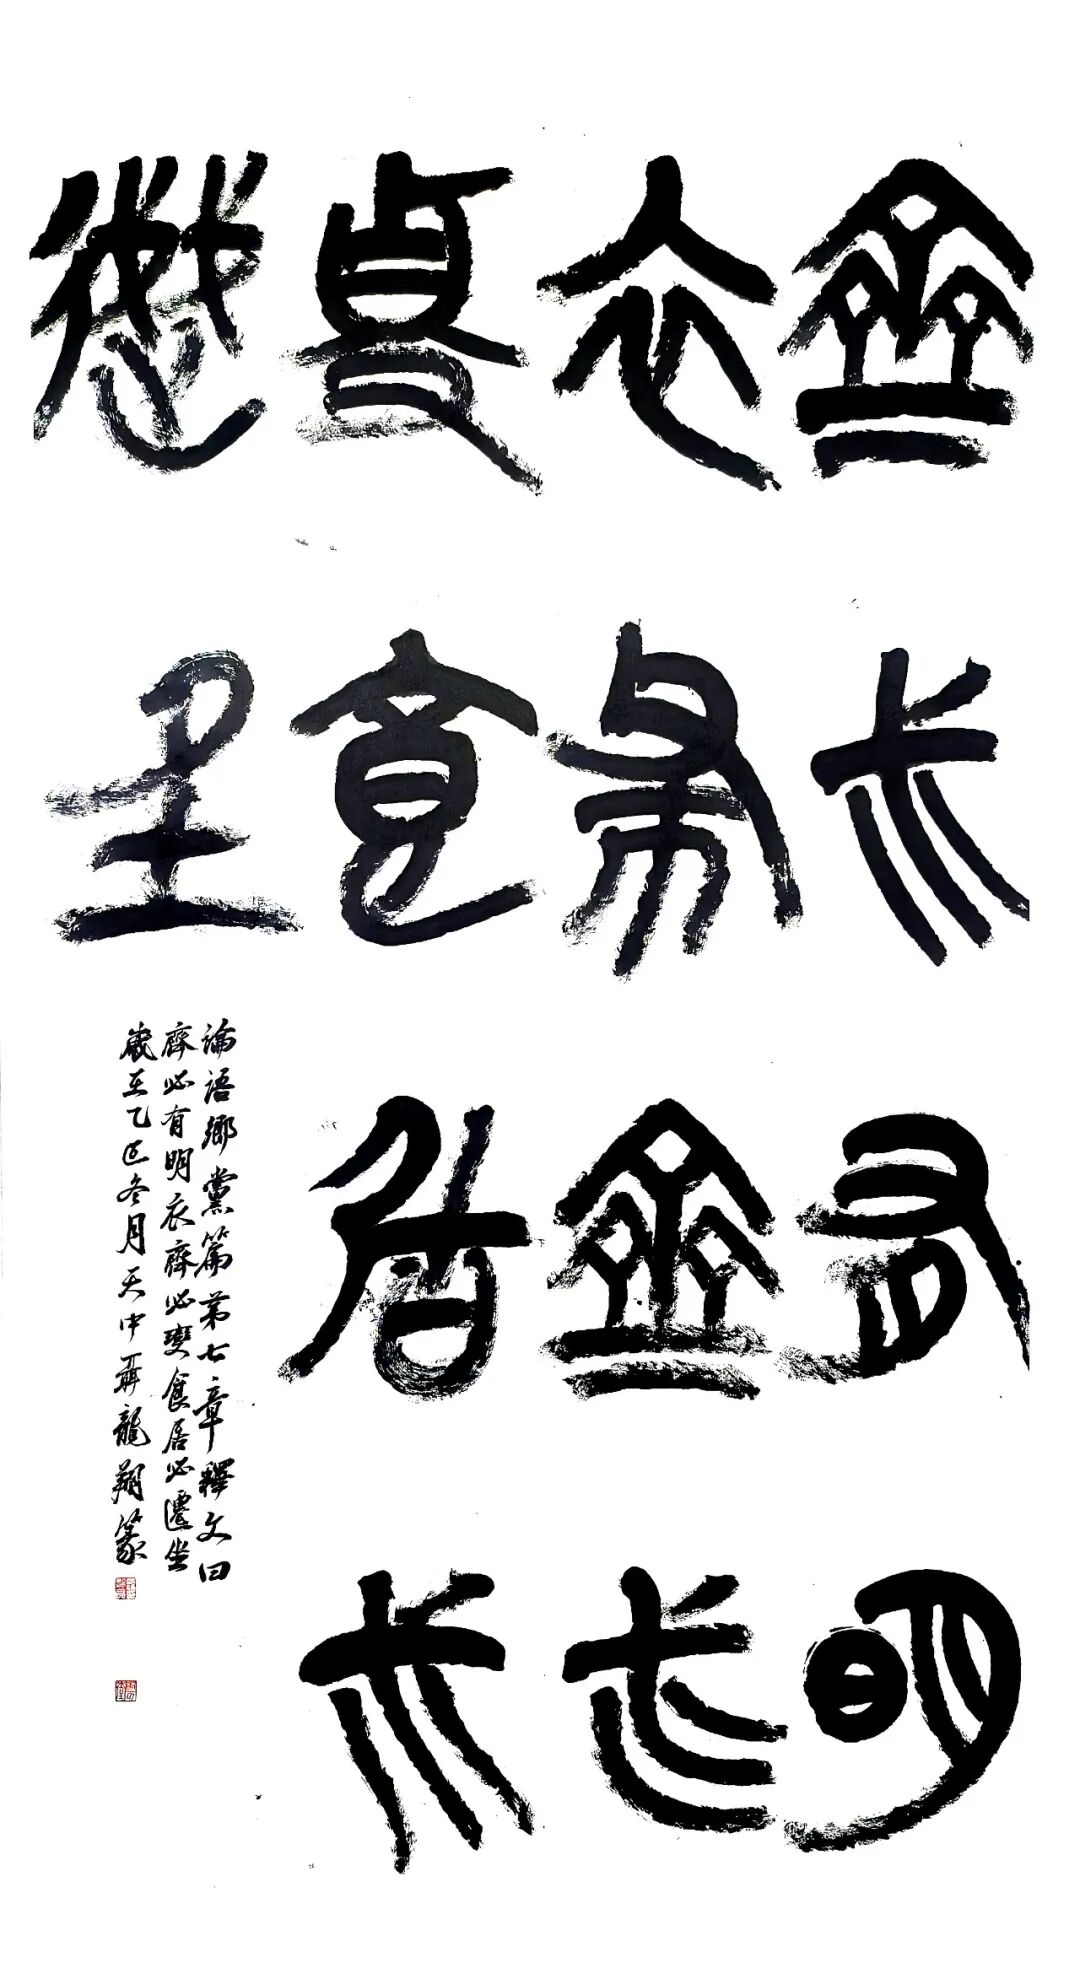 齊必有明
衣布齊必
變食居必
遷坐
論語鄉黨篇第七章釋文曰
齊必有明衣齊必變食居必遷坐
歲在乙巳冬月天中聶龍翔篆